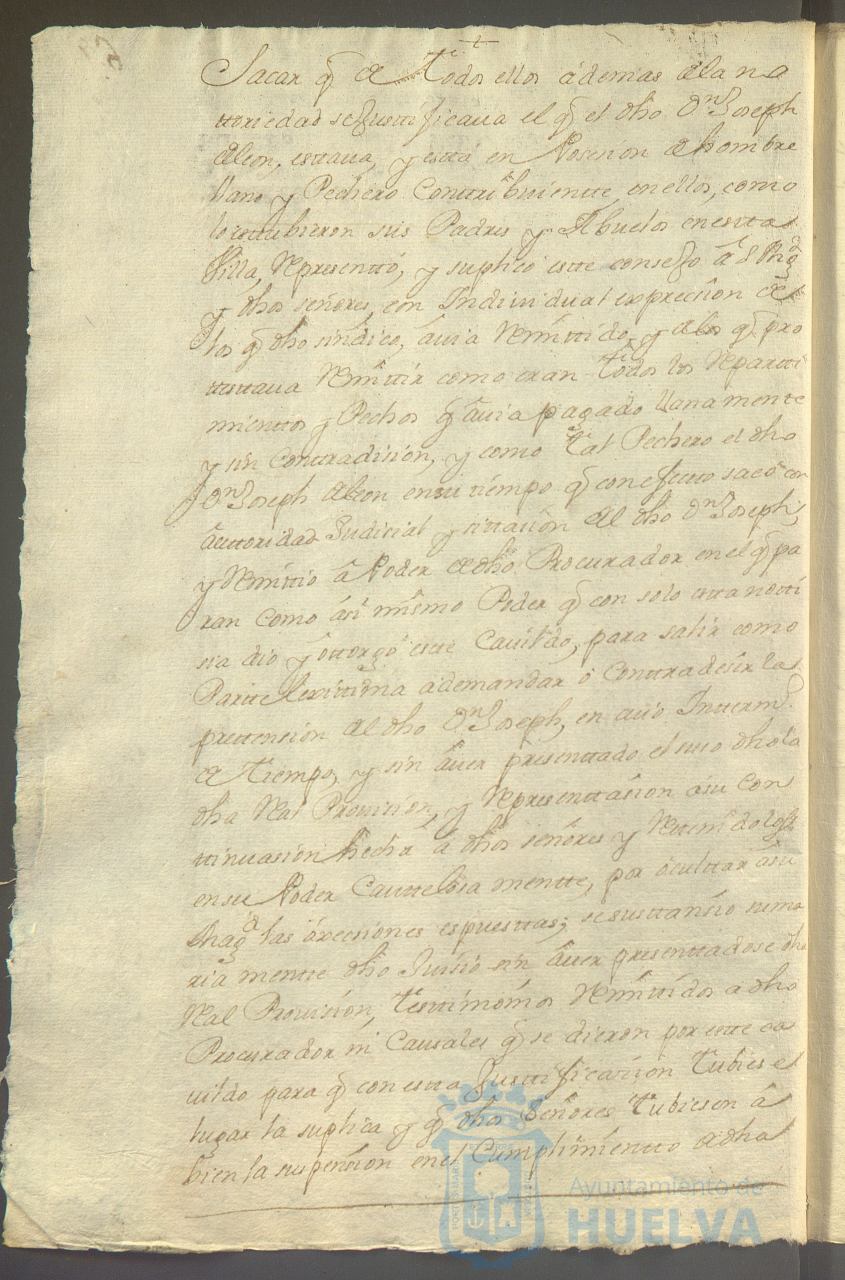 Sacar q̃ de todos ellos ádemas de la no
ttoriedad se Justtificava el q̃ el dho Dⁿ Joseph
de leon, esttava, y está en Posesion de hombre
llano y Pechero Conttribuientte, en ellos, como
lo esttubieron sus Padres y Abuelos en esta
Villa, Representtó, y suplicó este consejo â S Mag^d
y dhos señores, con Individual expresion de
los q̃ dho sindico, ávia Remittido, y de los q̃ pro
ttesttava Remittir como eran todos los Repartti
mienttos y Pechos q̃ avia pagado llanamente
y sin Conttradision, y como tal Pechero el dho
Dⁿ Joseph de leon en su tiempo q̃ con efectto sacó con
auttoridad Judicial y sittasion del dho Dⁿ Joseph,
y Remittió â Poder de dho Procurador en el q̃ pa
ran como ási mismo Poder q̃ con solo esta notti
sia dio y ottorgó este Cavildo, para salir como
Partte lexittima ádemandar ó Conttradesir la
prettension del dho Dⁿ Joseph, en cuio Intterm^o
de tiempo, y sin âver presenttado el suso dho la
dha Real Provision, y Representtasion á su Con
ttinuasion hecha â dhos señores y Retteniendolos
en su Poder Cauttelosamentte, por ocultar á su
Mag^d las óxecsiones espuesttas; se susttansió suma
riamentte dho Juisio sin âver presenttadose dha
Real Provision, Testtimonios Remittidos a dho
Procurador ni Causales q̃ se dieron por este ca
vildo para q̃ con esta Justtificasion tubiese
lugar la suplica y q̃ dhos Señores tubiesen â
bien la suspension en el Cumplimientto de dha
Ayuntamiento de
HUELVA